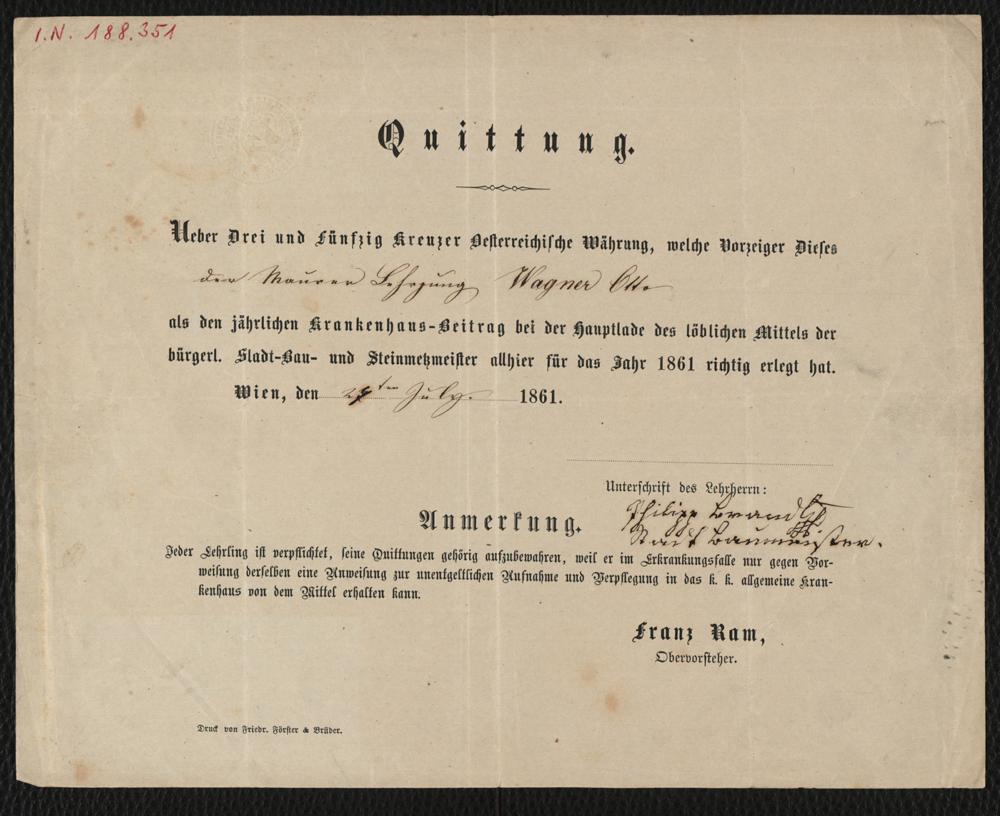 I.N. 188.351
Quittung.
Ueber Drei und Fünfzig Kreuzer Oesterreichische Währung, welche Vorzeiger Dieses
der Maurer Lehrjung Wagner Otto
als den jährlichen Krankenhaus-Beitrag bei der Hauptlade des löblichen Mittels der
bürgerl. Stadt-Bau- und Steinmetzmeister allhier für das Jahr 1861 richtig erlegt hat.
Wien, den ten July 1861.
Unterschrift des Lehrherrn:
Philipp Brandl
Stadt Baumeister.
Anmerkung.
Jeder Lehrling ist verpflichtet, seine Quittungen gehörig aufzubewahren, weil er im Erkrankungsfalle nur gegen Vor-
weisung derselben eine Anweisung zur unentgeltlichen Aufnahme und Verpflegung in das k. k. allgemeine Kran-
kenhaus von dem Mittel erhalten kann.
Franz Ram,
Obervorsteher.
Druck von Friedr. Förster & Brüder.